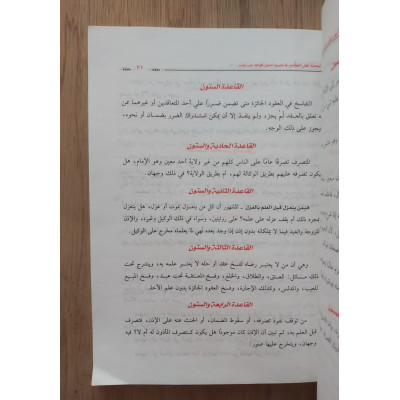 ٢١
القاعدة الستون
التفاسخ في العقود الجائزة متى تضمن ضررًا على أحد المتعاقدين أو غيرهما ممن
له تعلق بالعقد، لم يجز، ولم ينفذ إلا أن يمكن استدراك الضرر بضمان أو نحوه،
يجوز على ذلك الوجه.
القاعدة الحادية والستون
المتصرف تصرفًا عامًا على الناس كلهم من غير ولاية أحد معين وهو الإمام، هل
يكون تصرفه عليهم بطريق الوكالة لهم، أم بطريق الولاية؟ في ذلك وجهان.
القاعدة الثانية والستون
فيمن ينعزل قبل العلم بالعزل. المشهور أن كل من ينعزل بموت أو عزل، هل ينعزل
بمجرد ذلك أم يقف عزله على علمه؟ على روايتين، وسواء في ذلك الوكيل وغيره، والإذن
للزوجة والعبد فيما لا يملكانه بدون إذن إذا وجد بعده نهي لم يعلماه مخرج على الوكيل.
القاعدة الثالثة والستون
وهي أن من لا يعتبر رضاه لفسخ عقد أو حله لا يعتبر علمه به، ويندرج تحت
ذلك مسائل: العتق، والطلاق، والخلع، وفسخ المعتقة تحت عبد، وفسخ المبيع
للعيب، والمدلس، وكذلك الإجارة، وفسخ العقود الجائزة بدون علم الآخر.
القاعدة الرابعة والستون
من توقف نفوذ تصرفه، أو سقوط الضمان، أو الحنث عنه على الإذن، فتصرف
قبل العلم به، ثم تبين أن الإذن كان موجودًا هل يكون كتصرف المأذون له أم لا؟ فيه
وجهان، ويتخرج عليها صور: